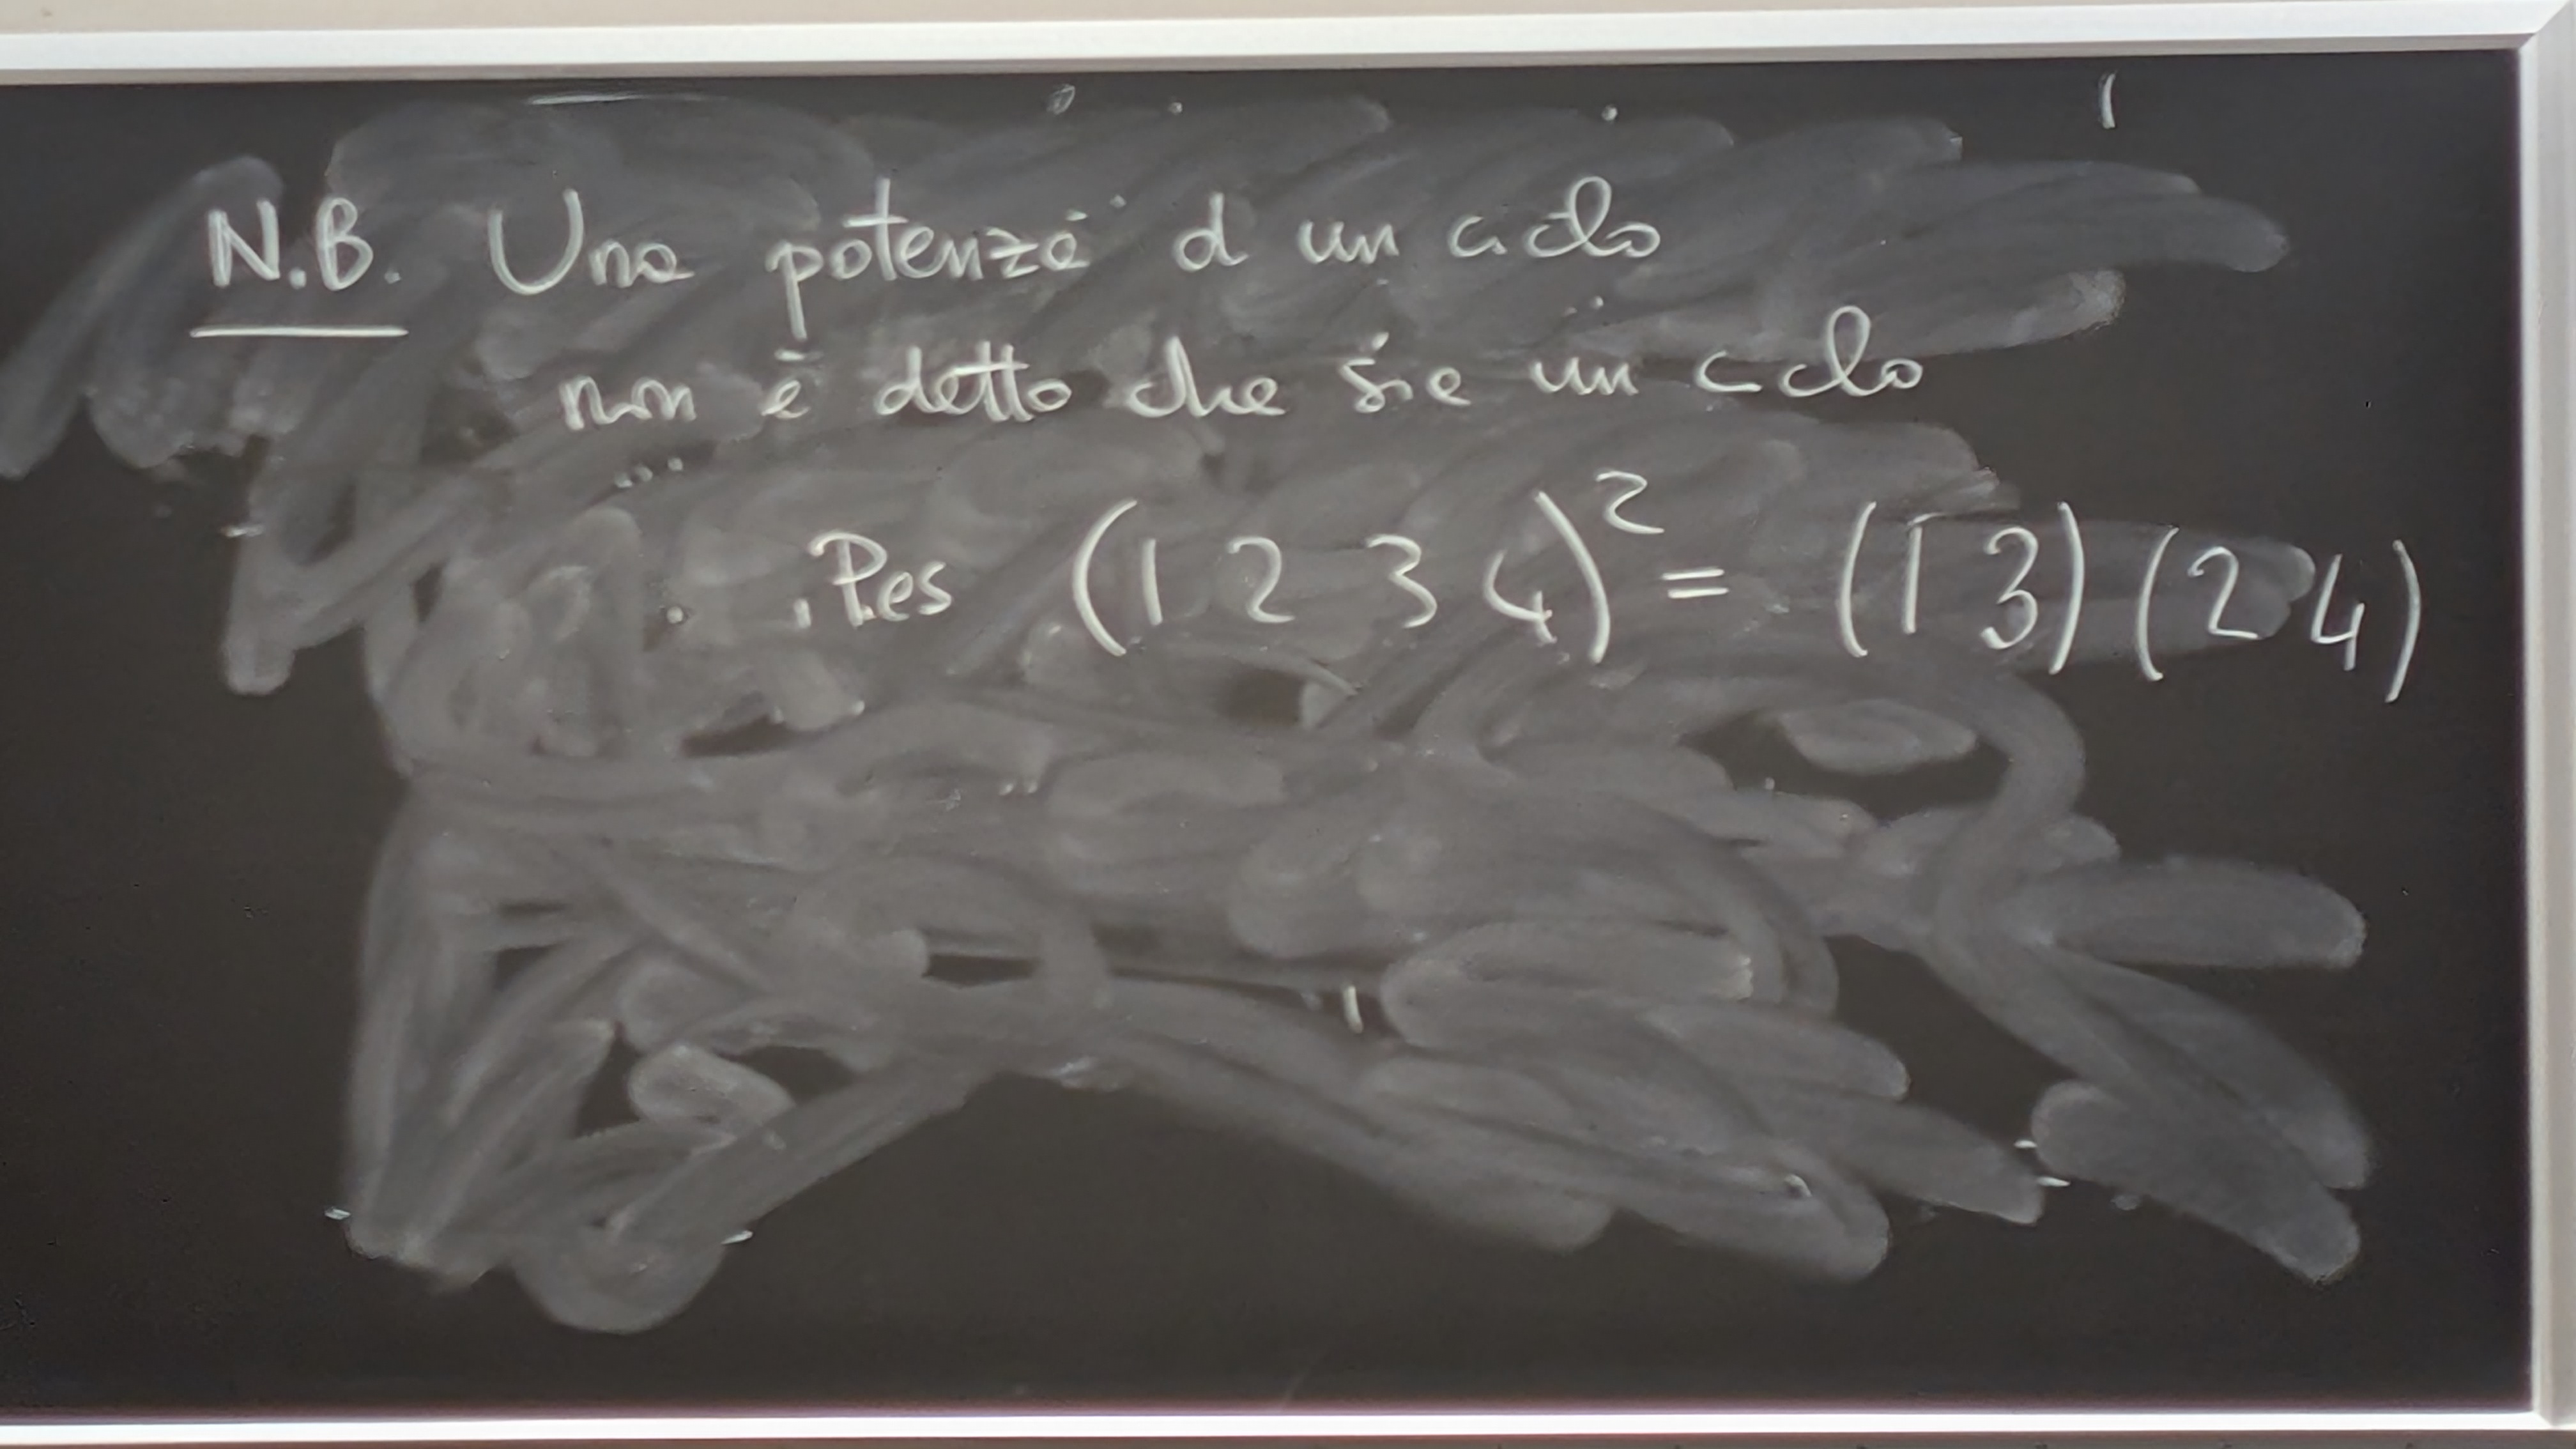 N.B. Una potenza d un ciclo
non è detto che sia un ciclo
Pes (1 2 3 4)² = (1 3)(2 4)